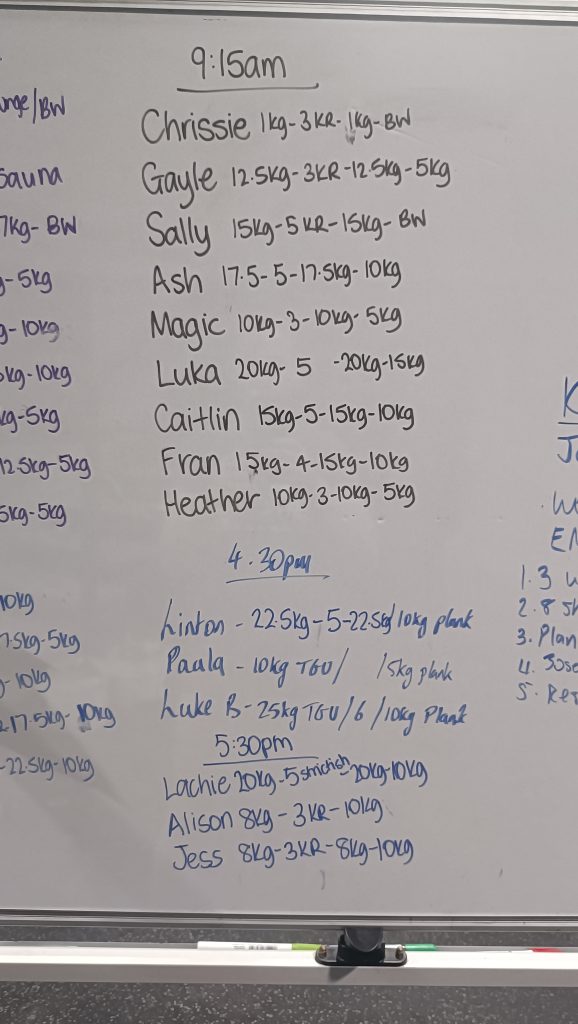 unge/BW
Sauna
7kg- BW
-5kg
g-10kg
kg-10kg
kg-5kg
12.5kg-5kg
5kg-5kg
10kg
7.5kg-5kg
-10kg
17.5kg-10kg
-22.5kg-10kg
9:15am
Chrissie 1kg-3KR-1kg-BW
Gayle 12.5kg-3KR-12.5kg-5kg
Sally 15kg-5KR-15kg-BW
Ash 17.5-5-17.5kg-10kg
Magic 10kg-3-10kg-5kg
Luka 20kg-5 -20kg-15kg
Caitlin 15kg-5-15kg-10kg
Fran 15kg-4-15kg-10kg
Heather 10kg-3-10kg-5kg
4.30pm
Linton - 22.5kg-5-22.5kg/10kg plank
Paula - 10kg TGU/ /5kg plank
Luke B-25kg TGU/6/10kg Plank
5:30pm
Lachie 20kg-5 -20kg-10kg
Alison 8kg-3KR-10kg
Jess 8kg-3KR-8kg-10kg
K
J
W
EM
1.3
2.8 S
3. Plan
4. 30se
5. Re